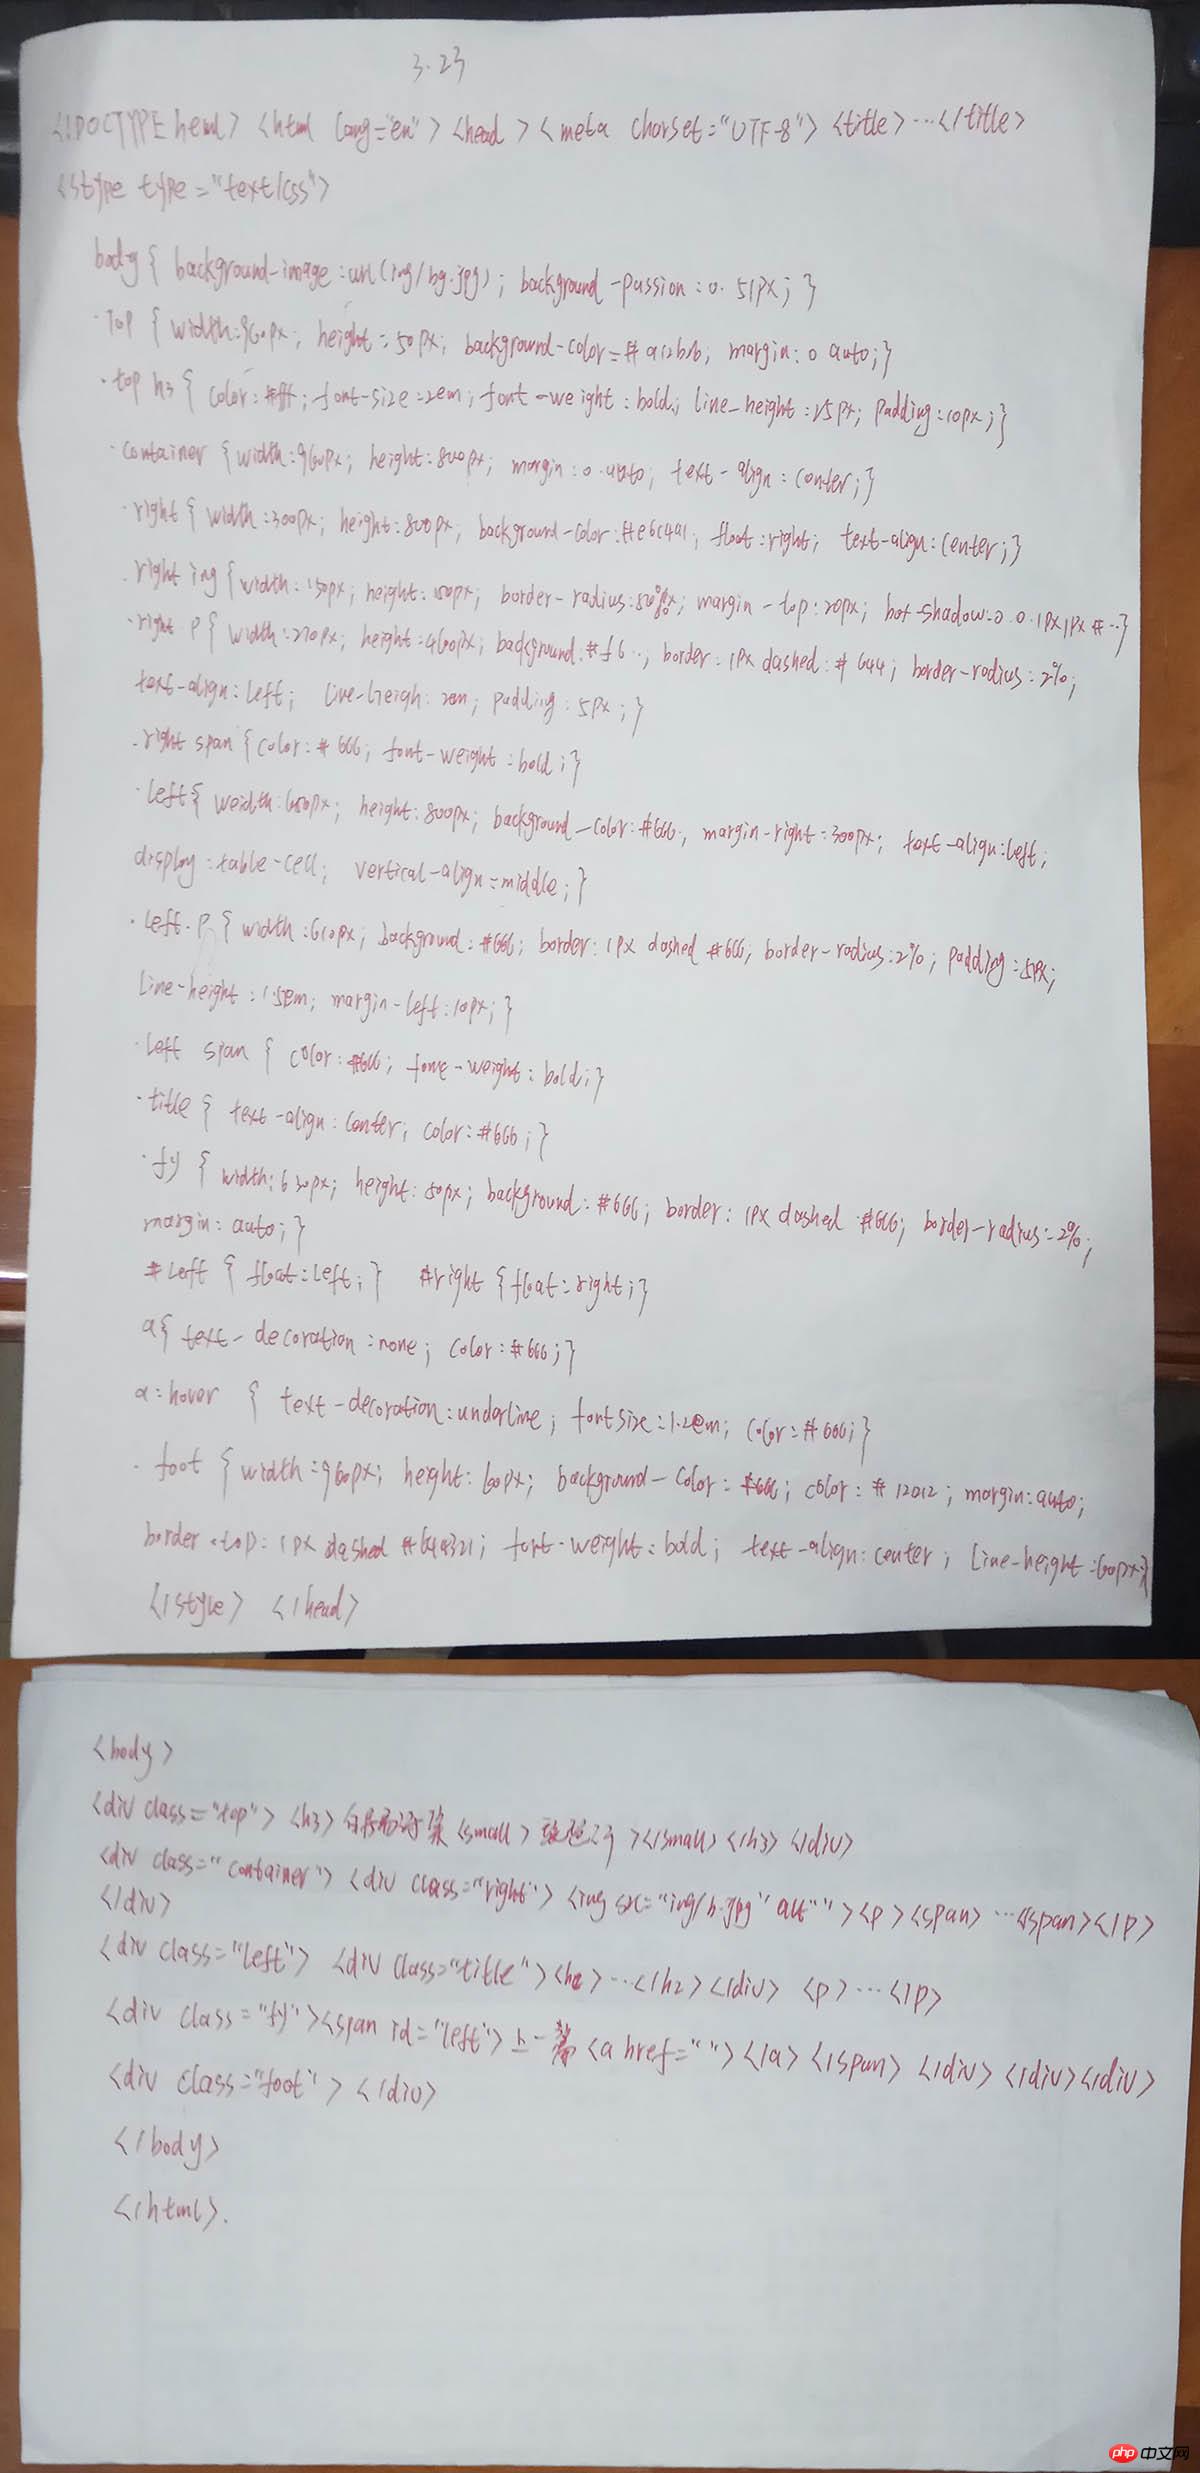 3.23
<!DOCTYPE heml> <html lang="en"> <head> <meta charset="UTF-8"> <title>...</title>
<stype type="text/css">
body { background-image:url(img/bg.jpg); background-passion:0.51px; }
.Top { width:960px; height:50px; background-color: margin:0 auto;}
.top h3 { color:#fff; font-size:2em; font-weight:bold; line-height:25px; padding:10px;}
.container {width:960px; height:800px; margin:0.auto; text-align:center;}
.right { width:300px; height:800px; background-color:#e6c4a1; float:right; text-align:center;}
.right img {width:150px; height:150px; border-radius: margin-top:20px; box-shadow:0.0.1px,1px #..}
.right P{ width:270px; height:460px; background:#f6..; border:1px dashed:#644; border-radius:2%;
text-align:left; line-heigh:2em; padding:5px;}
.right span {color:#666; font-weight:bold;}
.left{ weidth:650px; height:800px; background-color:#666; margin-right:300px; text-align:left;
display:table-cell; vertical-align:middle;}
.left.P { width:610px; background:#666; border:1px dashed #666; border-radius:2%; padding:5px;
line-height:1.5em; margin-left:10px;}
.left span { color:#666; font-weight:bold;}
.title { text-align:center; color:#666;}
.fy { width:630px; height:50px; background:#666; border:1px dashed #666; border-radius:2%;
margin:auto;}
#left { float:left;} #right {float:right;}
a{ text-decoration:none; color:#666;}
a:hover { text-decoration:underline; fontsize:1.2em; color:#666;}
.foot { width:960px; height:60px; background-color:#666; color:#12012; margin:auto;
border.top:1px dashed #64a321; font-weight:bold; text-align:center; line-height:60px;}
</style> </head>
<body>
<div class="top"> <h3> <small> </small> </h3> </div>
<div class="container"> <div class="right"> <img src="img/h.jpg" alt""> <p> <span> ...<span></p>
</div>
<div class="left"> <div class="title"><h2>...</h2></div> <p>...</p>
<div class="fy"><span id="left">上一篇<a href=""></a></span> </div> </div></div>
<div class="foot"> </div>
</body>
</html>.
php 中文网